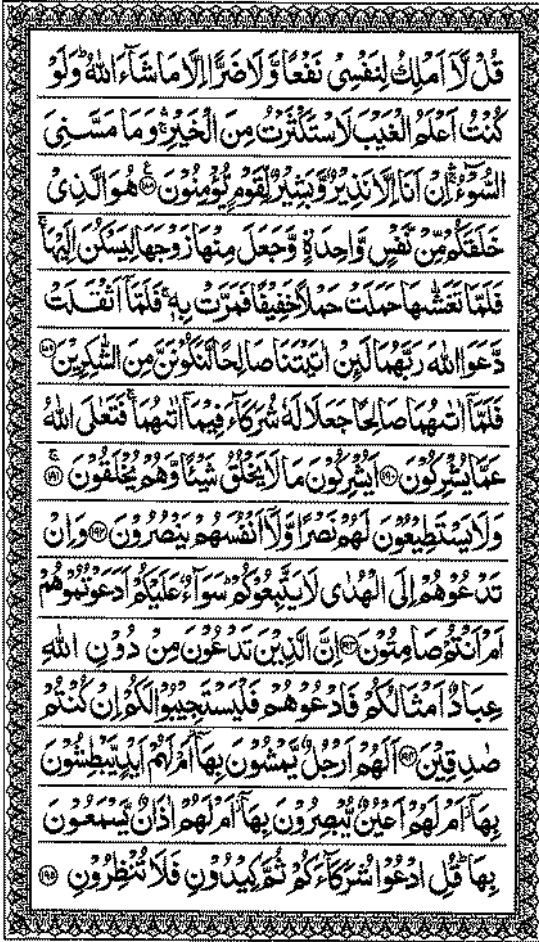 قُلْ لَّاۤ اَمْلِكُ لِنَفْسِیْ نَفْعًا وَّلَا ضَرًّا اِلَّا مَا شَآءَ اللّٰهُ ؕ وَلَوْ
كُنْتُ اَعْلَمُ الْغَیْبَ لَاسْتَكْثَرْتُ مِنَ الْخَیْرِ ۛۚ وَمَا مَسَّنِیَ
السُّوْٓءُ ۛۚ اِنْ اَنَا اِلَّا نَذِیْرٌ وَّبَشِیْرٌ لِّقَوْمٍ یُّؤْمِنُوْنَ ﴿۱۸۸﴾ هُوَ الَّذِیْ
خَلَقَكُمْ مِّنْ نَّفْسٍ وَّاحِدَةٍ وَّجَعَلَ مِنْهَا زَوْجَهَا لِیَسْكُنَ اِلَیْهَا ۚ
فَلَمَّا تَغَشّٰىهَا حَمَلَتْ حَمْلًا خَفِیْفًا فَمَرَّتْ بِهٖ ۚ فَلَمَّاۤ اَثْقَلَتْ
دَّعَوَا اللّٰهَ رَبَّهُمَا لَىِٕنْ اٰتَیْتَنَا صَالِحًا لَّنَكُوْنَنَّ مِنَ الشّٰكِرِیْنَ ﴿۱۸۹﴾
فَلَمَّاۤ اٰتٰىهُمَا صَالِحًا جَعَلَا لَهٗ شُرَكَآءَ فِیْمَاۤ اٰتٰىهُمَا ۚ فَتَعٰلَی اللّٰهُ
عَمَّا یُشْرِكُوْنَ ﴿۱۹۰﴾ اَیُشْرِكُوْنَ مَا لَا یَخْلُقُ شَیْـًٔا وَّهُمْ یُخْلَقُوْنَ ﴿۱۹۱﴾ ۚ
وَلَا یَسْتَطِیْعُوْنَ لَهُمْ نَصْرًا وَّلَاۤ اَنْفُسَهُمْ یَنْصُرُوْنَ ﴿۱۹۲﴾ وَاِنْ
تَدْعُوْهُمْ اِلَی الْهُدٰی لَا یَتَّبِعُوْكُمْ ؕ سَوَآءٌ عَلَیْكُمْ اَدَعَوْتُمُوْهُمْ
اَمْ اَنْتُمْ صَامِتُوْنَ ﴿۱۹۳﴾ اِنَّ الَّذِیْنَ تَدْعُوْنَ مِنْ دُوْنِ اللّٰهِ
عِبَادٌ اَمْثَالُكُمْ فَادْعُوْهُمْ فَلْیَسْتَجِیْبُوْا لَكُمْ اِنْ كُنْتُمْ
صٰدِقِیْنَ ﴿۱۹۴﴾ اَلَهُمْ اَرْجُلٌ یَّمْشُوْنَ بِهَاۤ ؗ اَمْ لَهُمْ اَیْدٍ یَّبْطِشُوْنَ
بِهَاۤ ؗ اَمْ لَهُمْ اَعْیُنٌ یُّبْصِرُوْنَ بِهَاۤ ؗ اَمْ لَهُمْ اٰذَانٌ یَّسْمَعُوْنَ
بِهَا ؕ قُلِ ادْعُوْا شُرَكَآءَكُمْ ثُمَّ كِیْدُوْنِ فَلَا تُنْظِرُوْنِ ﴿۱۹۵﴾